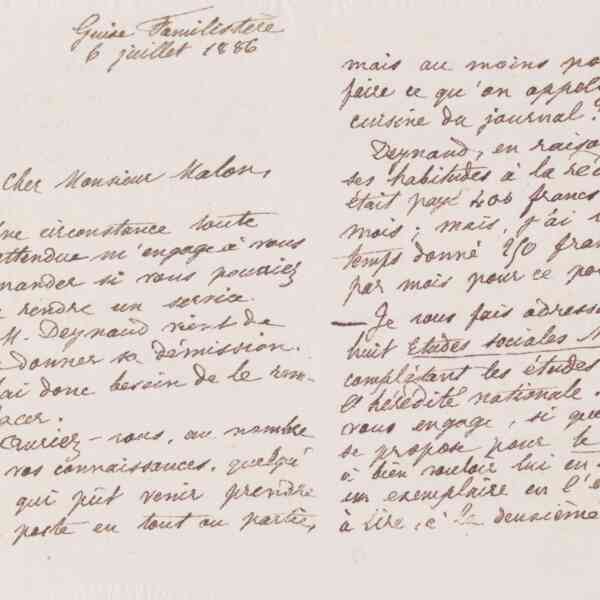 Guise Familistère
6 juillet 1886
Cher Monsieur Malon,
ne circonstance toute
attendue m'engage à vous
mander si vous pouviez
rendre un service.
M. Deynaud vient de
donner sa démission.
ai donc besoin de le rem-
lacer.
Auriez-vous, au nombre
vos connaissances, quelqu'
qui pût venir prendre
poste en tout ou partie,
mais au moins po
faire ce qu'on appel
cuisine du journal ?
Deynaud, en raiso
ses habitudes à la réd
était payé 400 francs
mois ; mais, j'ai
temps donné 250 fran
par mois pour ce po
— Je vous fais adresse
huit Etudes sociales N
complétant les études
hérédité nationale.
vous engage, si que
se propose pour le
à bien vouloir lui en
un exemplaire en l'
à lire, deuxième